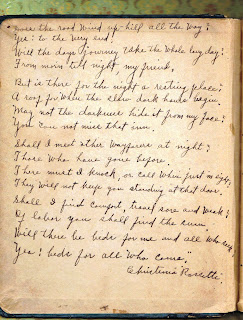 "Does the road wind up-hill all the way?
Yes: to the very end.
Will the day's journey take the whole long day?
From morn till night, my friend.
But is there for the night a resting place?
A roof for when the slow dark hours begin.
May not the darkness hide it from my face?
You can not miss that inn.
Shall I meet other wayfarers at night?
Those who have gone before.
Then must I knock, or call when just in sight?
They will not keep you standing at that door.
Shall I find comfort, travel sore and weak?
Of labor you shall find the sum.
Will there be beds for me and all who seek?
Yea: beds for all who come."
Christina Rossetti